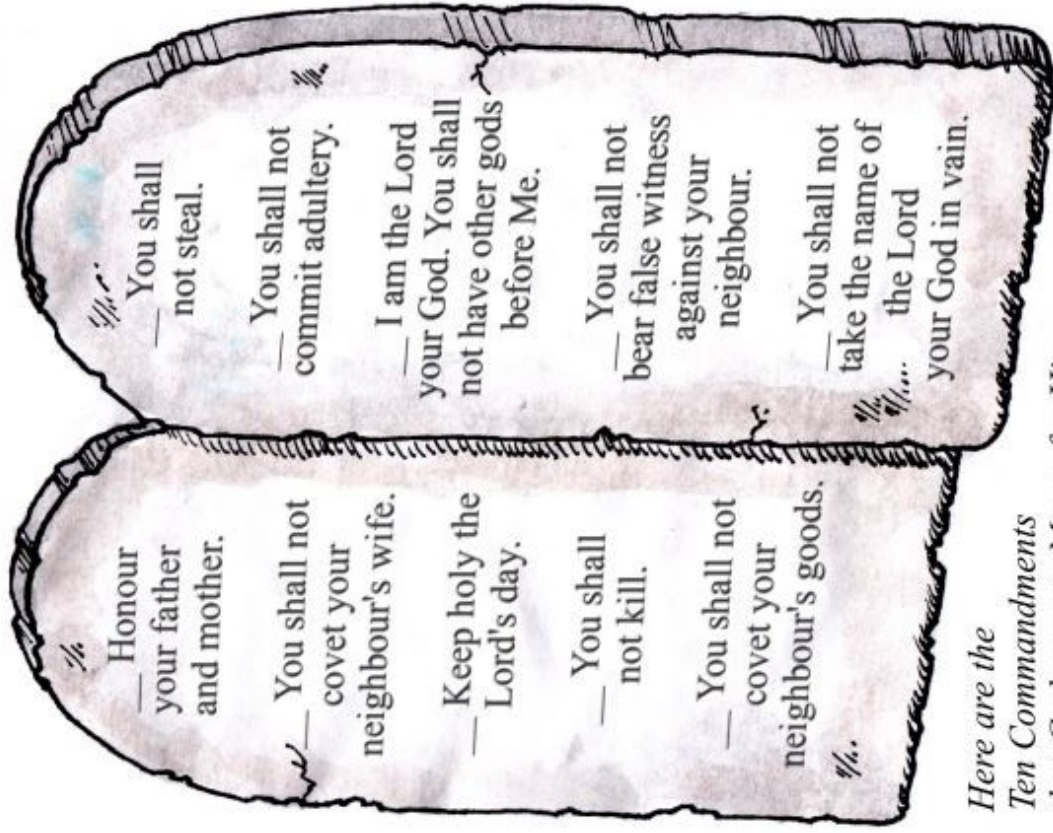 ___ Honour
your father
and mother.
___ You shall not
covet your
neighbour's wife.
___ Keep holy the
Lord's day.
___ You shall
not kill.
___ You shall not
covet your
neighbour's goods.
___ You shall
not steal.
___ You shall not
commit adultery.
___ I am the Lord
your God. You shall
not have other gods
before Me.
___ You shall not
bear false witness
against your
neighbour.
___ You shall not
take the name of
the Lord
your God in vain.
Here are the
Ten Commandments
that God gave to Moses for His